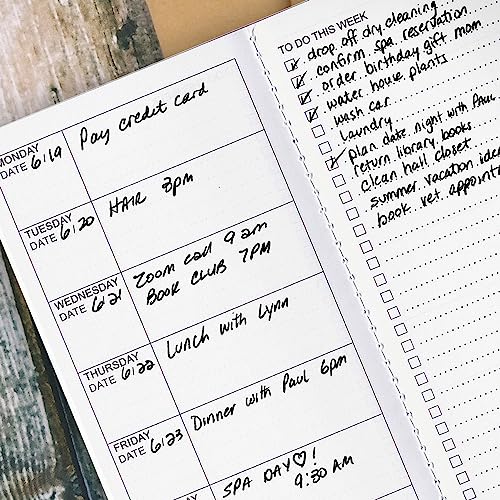 MONDAY
DATE 6/19
Pay credit card
TUESDAY
DATE 6/20
HAIR
WEDNESDAY
DATE 6/21
Zoom call 9am
BOOK CLUB 7PM
THURSDAY
DATE 6/22
Lunch with Lynn
FRIDAY
DATE 6/23
Dinner with Paul 6pm
SPA DAY♡!
9:30 AM
TO DO THIS WEEK
drop off dry cleaning
confirm spa reservation
order birthday gift mom
water house plants
wash car
laundry
plan date night with PAUL
return library books
clean hall closet
summer vacation idea
book vet appoint